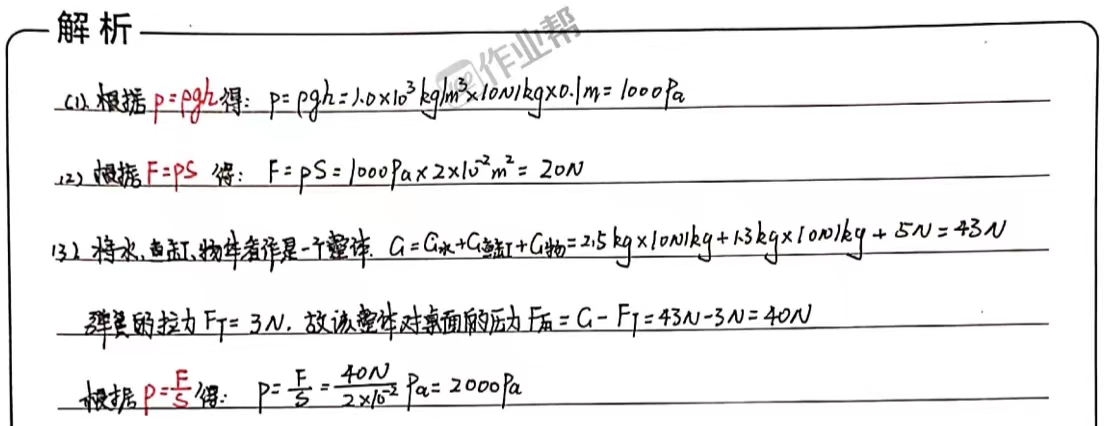 解析
作业帮
(1) 根据 p=ρgh 得: p=ρgh=1.0×10³kg/m³×10N/kg×0.1m=1000Pa
(2) 根据 F=pS 得: F=pS=1000Pa×2×10⁻²m²=20N
(3) 将水、鱼缸、物体看作是一个整体. G=G水+G鱼缸+G物=2.5kg×10N/kg+1.3kg×10N/kg+5N=43N
弹簧的拉力 F_T=3N, 故该整体对桌面的压力 F压=G-F_T=43N-3N=40N
根据 p=F/S 得: p=F/S=40N/2×10⁻² Pa=2000Pa